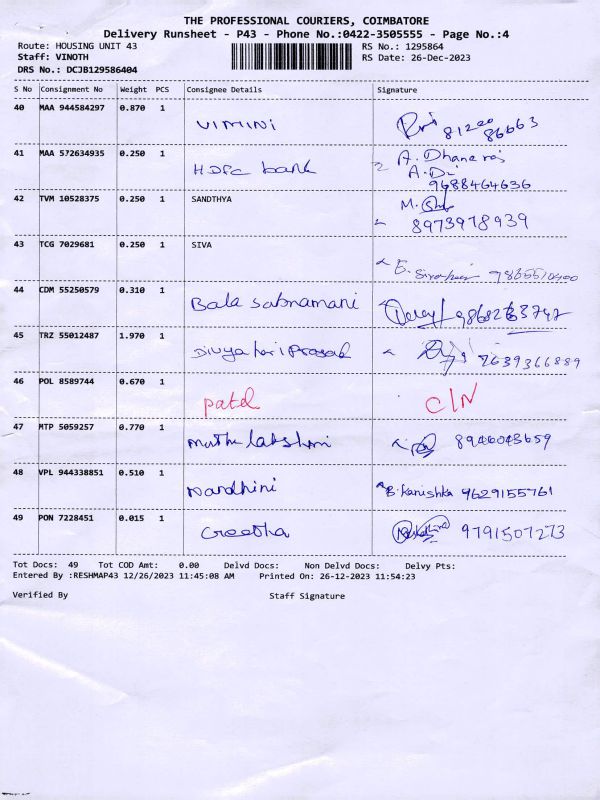 THE PROFESSIONAL COURIERS, COIMBATORE
Delivery Runsheet - P43 - Phone No.:0422-3505555 - Page No.:4
Route: HOUSING UNIT 43 RS No.: 1295864
Staff: VINOTH RS Date: 26-Dec-2023
DRS No.: DCJB129586404
S No Consignment No Weight PCS Consignee Details Signature
40 MAA 944584297 0.870 1 VIMINI 81220 86663
41 MAA 572634935 0.250 1 HDFC bank A. Dhanaraj
9688464636
42 TVM 10528375 0.250 1 SANDTHYA M.
8973978939
43 TCG 7029681 0.250 1 SIVA
44 CDM 55250579 0.310 1 Bala sabnamani
45 TRZ 55012487 1.970 1 Divya hari Prasab
46 POL 8589744 0.670 1 patel C/N
47 MTP 5059257 0.770 1 muthu lakshmi 8946043659
48 VPL 944338851 0.510 1 Nandhini B. Kanishka 9629155761
49 PON 7228451 0.015 1 Greetha 9791507273
Tot Docs: 49 Tot COD Amt: 0.00 Delvd Docs: Non Delvd Docs: Delvy Pts:
Entered By :RESHMAP43 12/26/2023 11:45:08 AM Printed On: 26-12-2023 11:54:23
Verified By Staff Signature